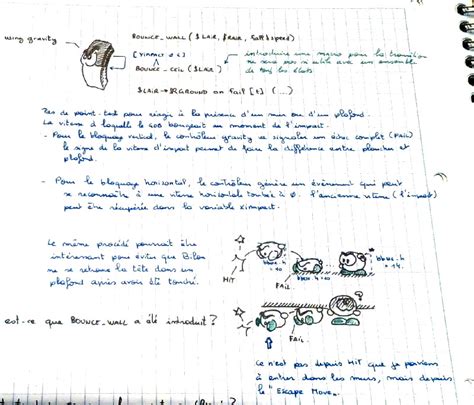 wing gravity
BOUNCE_WALL ($LAIR, $RAIR, fall$speed)
[XIMPACT ≠ 0]
BOUNCE_CEIL ($LAIR)
introduire une macro pour la transition
ne sera pas si utile avec un ensemble
de tous les états.
$LAIR → $RGROUND on fail [t] (...)
Pas de point-test pour réagir à la présence d'un mur ou d'un plafond.
La vitesse à laquelle le GOB bougeait au moment de l'impact
- Pour le blocage vertical, le contrôleur gravity va signaler un échec complet (FAIL)
le signe de la vitesse d'impact permet de faire la différence entre plancher et
plafond.
- Pour le blocage horizontal, le contrôleur génère un évènement qui peut
se reconnaître à une vitesse horizontale tombée à 0. l'ancienne vitesse (l'impact)
peut être récupérée dans la variable ximpact.
Le même procédé pourrait être
intéressant pour éviter que Bilou
ne se retrouve la tête dans un
plafond après avoir été touché.
HIT
bbox.h = 10
FAIL
bbox.h = 14.
est-ce que BOUNCE_WALL a été introduit ?
FAIL
ce n'est pas depuis HIT que je parviens
à entrer dans les murs, mais depuis
le "Escape Move"..